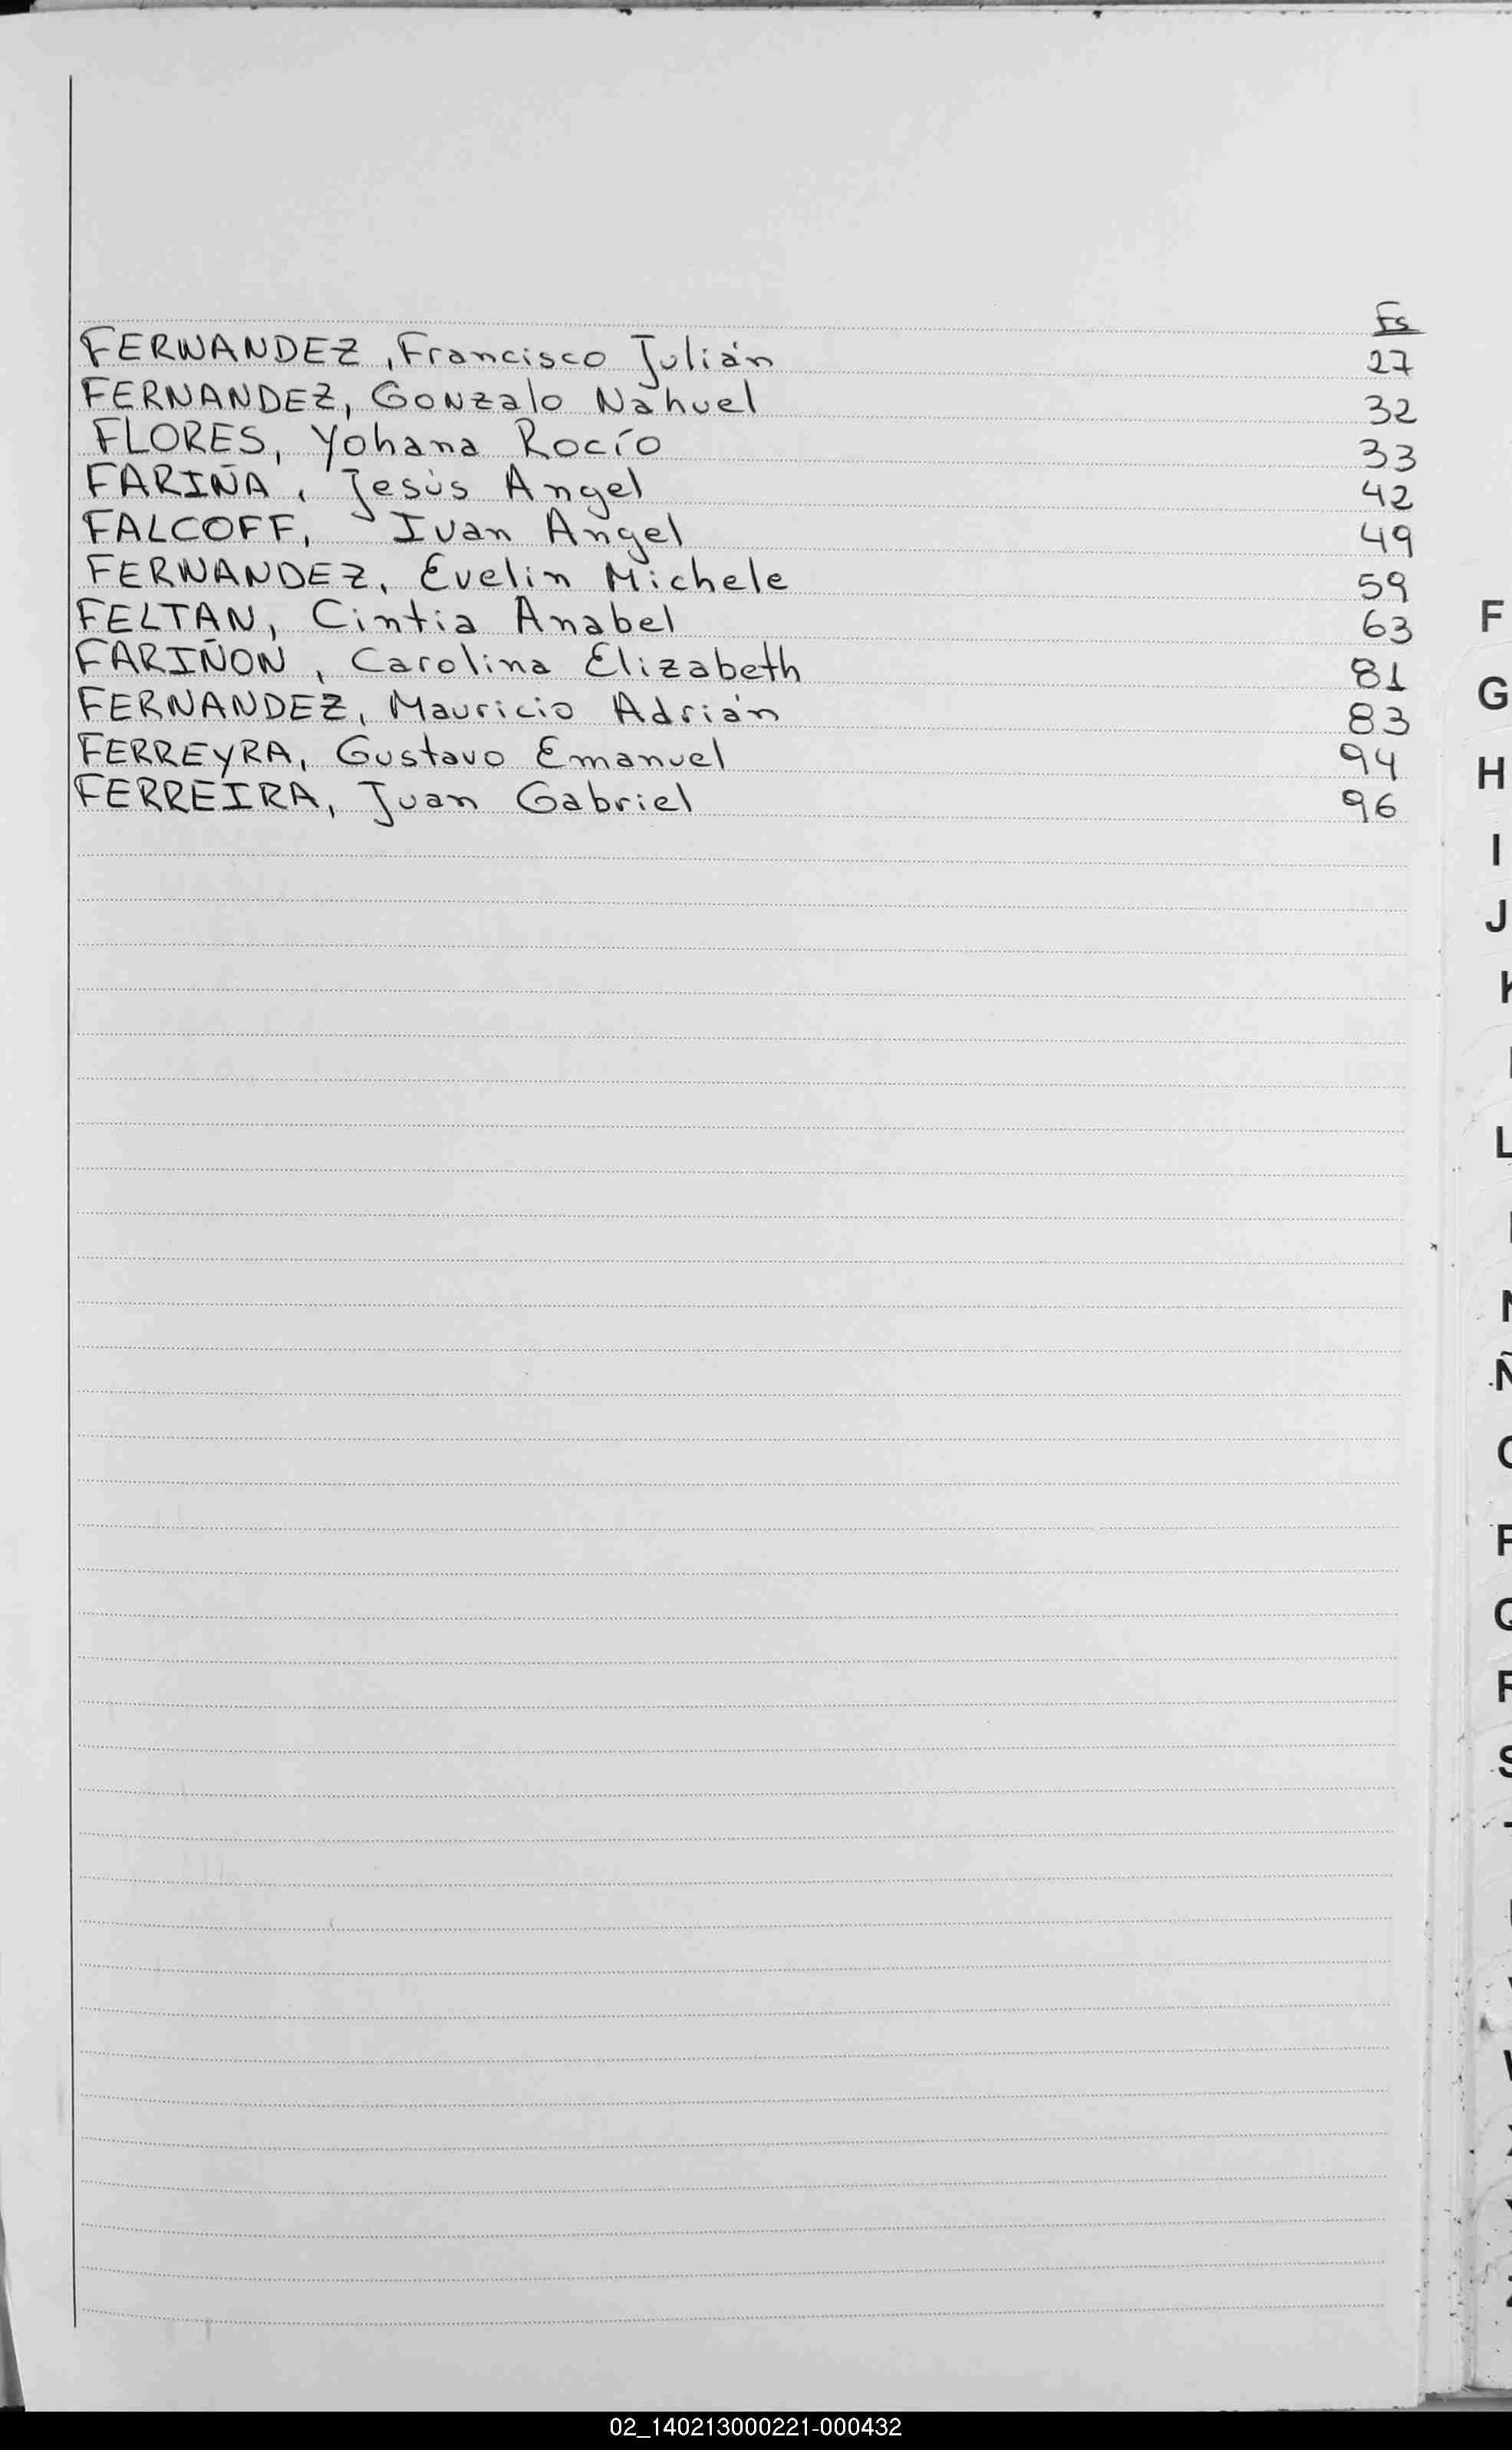 Fs
FERNANDEZ, Francisco Julián 27
FERNANDEZ, Gonzalo Nahuel 32
FLORES, Yohana Rocío 33
FARIÑA, Jesús Angel 42
FALCOFF, Ivan Angel 49
FERNANDEZ, Evelin Michele 59
FELTAN, Cintia Anabel 63
FARIÑON, Carolina Elizabeth 81
FERNANDEZ, Mauricio Adrián 83
FERREYRA, Gustavo Emanuel 94
FERREIRA, Juan Gabriel 96
F
G
H
I
J
K
L
N
Ñ
O
P
Q
R
S
02_140213000221-000432